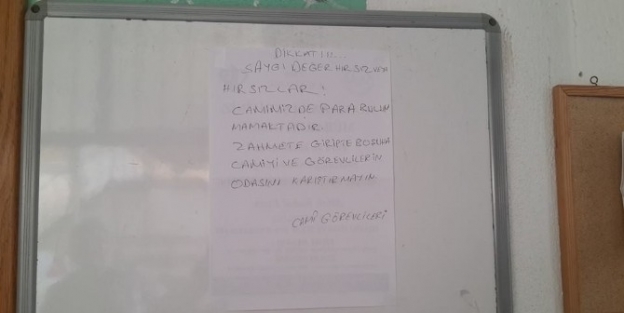 DİKKAT!!!
SAYGI DEĞER HIRSIZ VEYA
HIRSIZLAR!
CAMİMİZDE PARA BULUN
MAMAKTADIR.
ZAHMETE GİRİPTE BOŞUNA
CAMİYİ VE GÖREVLİLERİN
ODASINI KARIŞTIRMAYIN
CAMİ GÖREVLİLERİ